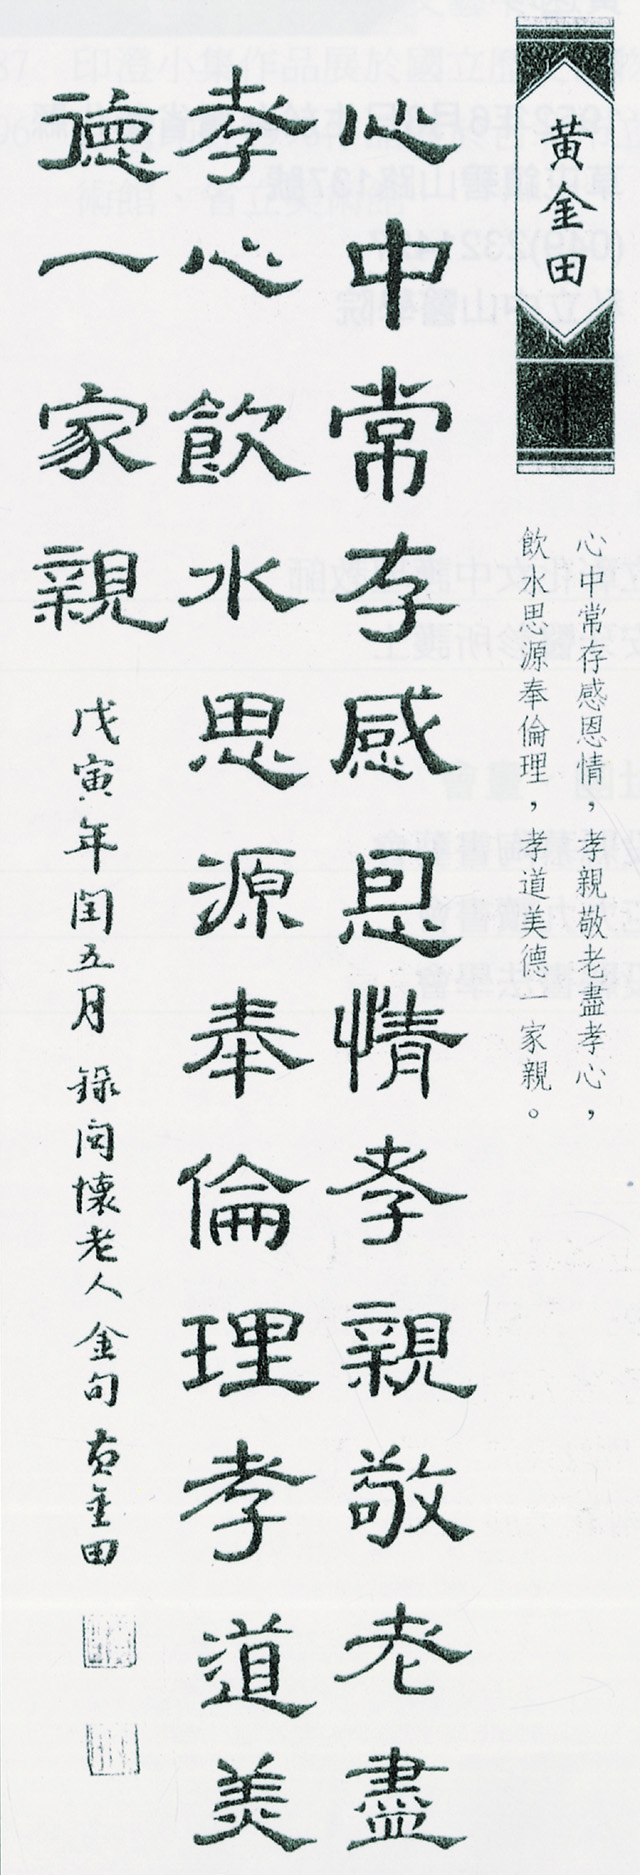 黃金田
心中常存感恩情，孝親敬老盡孝心，
飲水思源奉倫理，孝道美德一家親。
心中常存感恩情孝親敬老盡
孝心飲水思源奉倫理孝道美
德一家親
戊寅年閏五月 錄閱懷老人金句 黃金田